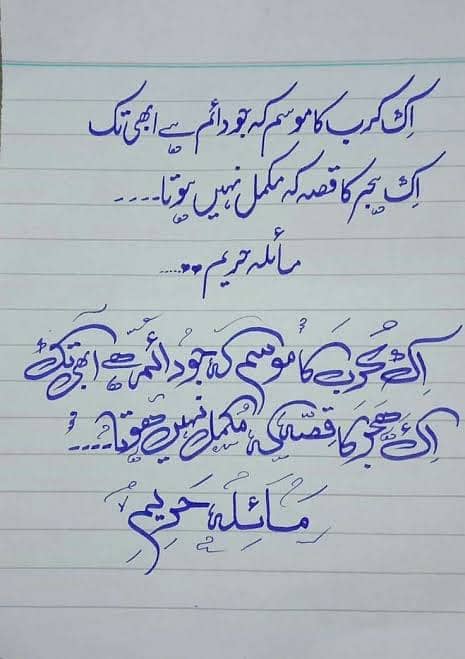 اِک کرب کا موسم کہ جو دائم ہے ابھی تک
اِک ہجر کا قصہ کہ مکمل نہیں ہوتا۔۔۔۔
مائلہ حریم۔۔۔۔۔۔۔
اِک کُرَب کا موسم کہ جو دائم ہے ابھی تک
اِک ہَجَر کَا قِصّہ کہ مُکمل نہیں ہوتا۔۔۔۔:
مَائِلہ حَرِیم